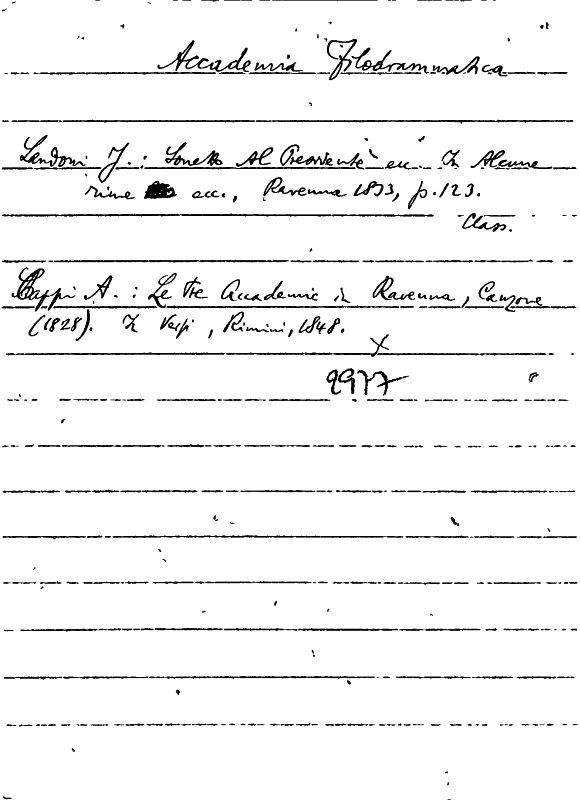 Accademia Filodrammatica
Landoni J.: Sonetto Al Presidente ecc. In Alcune
rime ecc., Ravenna 1833, p. 123.
Class.
Cappi A.: Le tre Accademie in Ravenna, Canzone
(1828). In Versi, Rimini, 1848.
X
2977